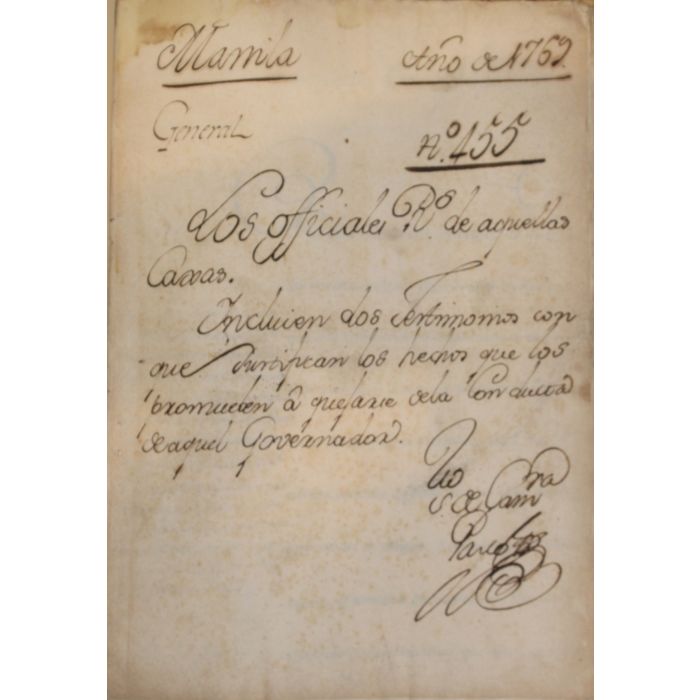 Manila
Año de 1769.
General
N.º 455
Los officiales R.s de aquellas
Caxas.
Incluien dos Testimonios con
que Justifican los hechos que los
promueben â quejarse de la Conducta
de aquel Governador.
S. de Cam.ra